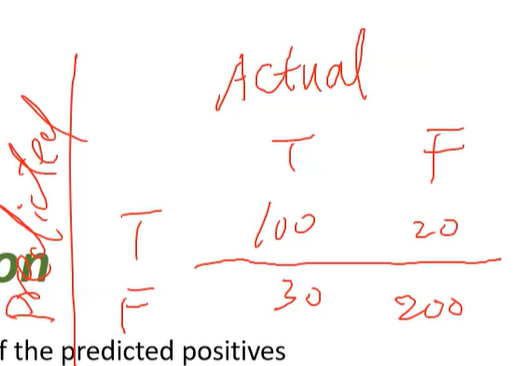 Actual
T F
Predicted
T 100 20
on
F 30 200
f the predicted positives